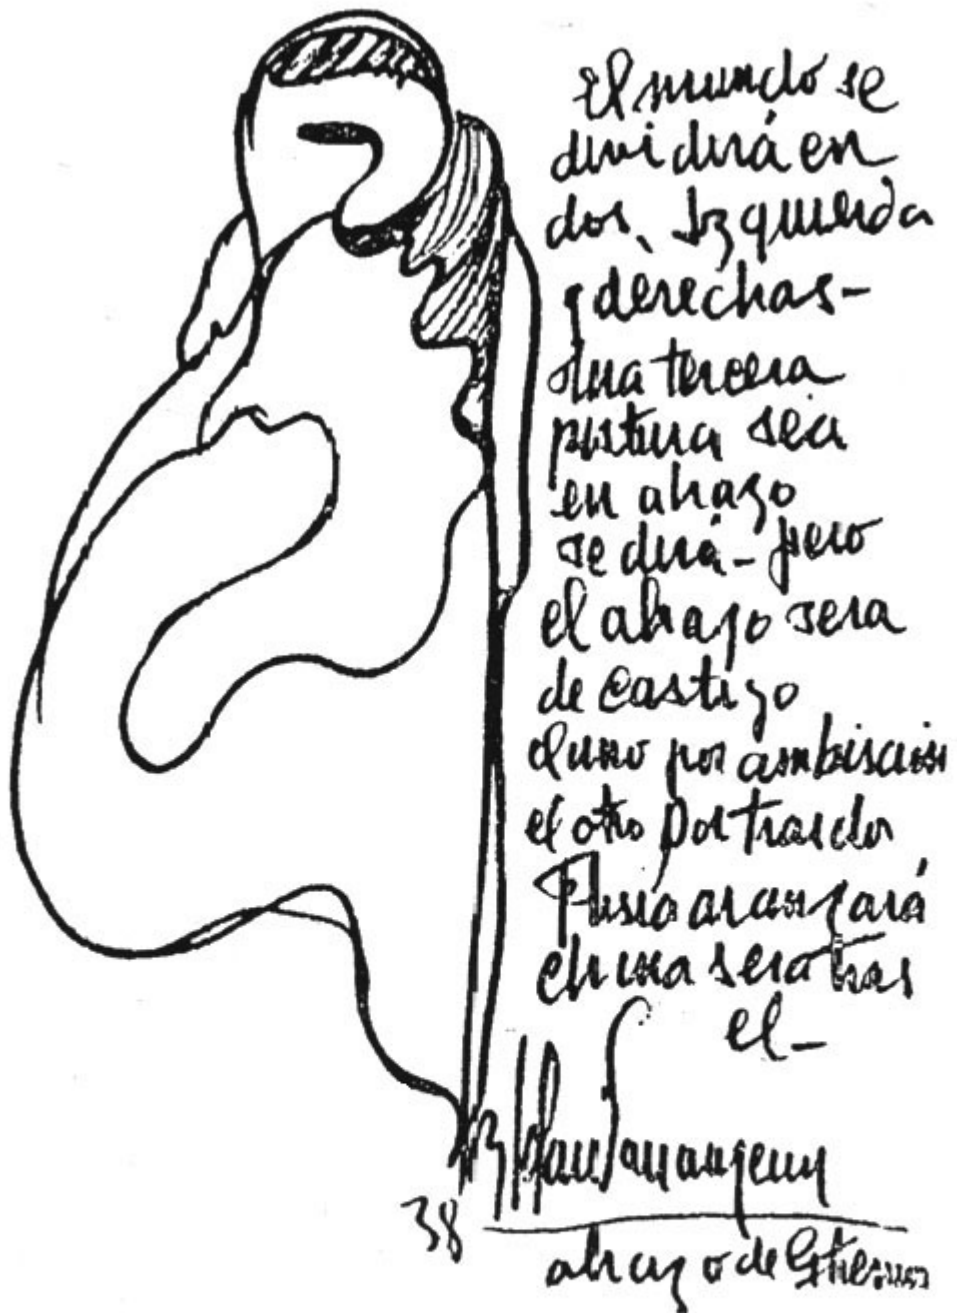 El mundo se
dividirá en
dos, Izquierda
y derechas-
Una tercera
postura sera
en abrazo
se dirá- pero
el abrazo sera
de castigo
el uno por ambiscion
el otro por traidor
Rusia avanzará
china sera tras
el-
B Solari Parravicini
38
abrazo de